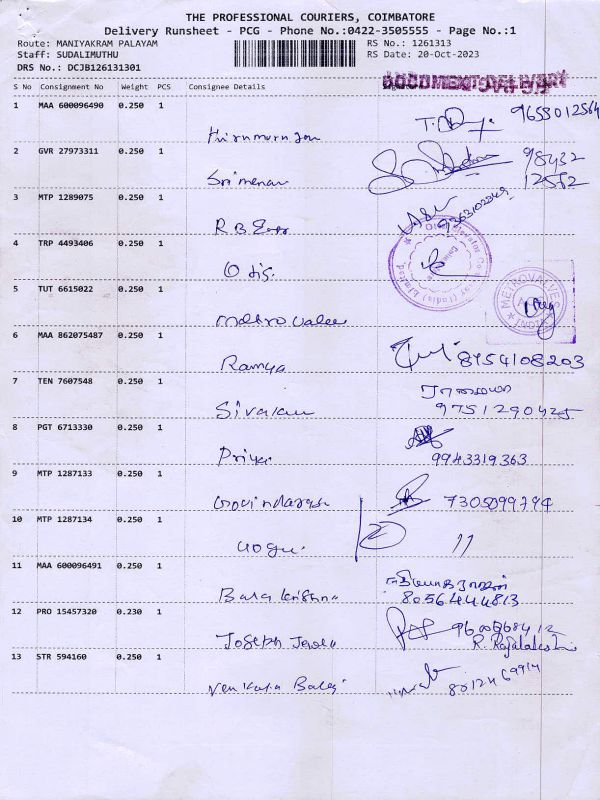 THE PROFESSIONAL COURIERS, COIMBATORE
Delivery Runsheet - PCG - Phone No.:0422-3505555 - Page No.:1
Route: MANIYAKRAM PALAYAM
RS No.: 1261313
Staff: SUDALIMUTHU
RS Date: 20-Oct-2023
DRS No.: DCJB126131301
S No Consignment No Weight PCS Consignee Details
1 MAA 600096490 0.250 1
9655012564
2 GVR 27973311 0.250 1
Sri menan 98432
12582
3 MTP 1289075 0.250 1
R.B 9363102249
4 TRP 4493406 0.250 1
Otis
5 TUT 6615022 0.250 1
Metro valve METROVALVES INDIA
6 MAA 862075487 0.250 1
Ramya 8754108203
7 TEN 7607548 0.250 1
ராமையா
9751290425
8 PGT 6713330 0.250 1
Priya 9943319363
9 MTP 1287133 0.250 1
Govindaraj 7305099794
10 MTP 1287134 0.250 1
11
11 MAA 600096491 0.250 1
Bala krishna 8056444813
12 PRO 15457320 0.230 1
Joseph
R. Rajalakshmi
13 STR 594160 0.250 1
Venkata Balaji 8012469914